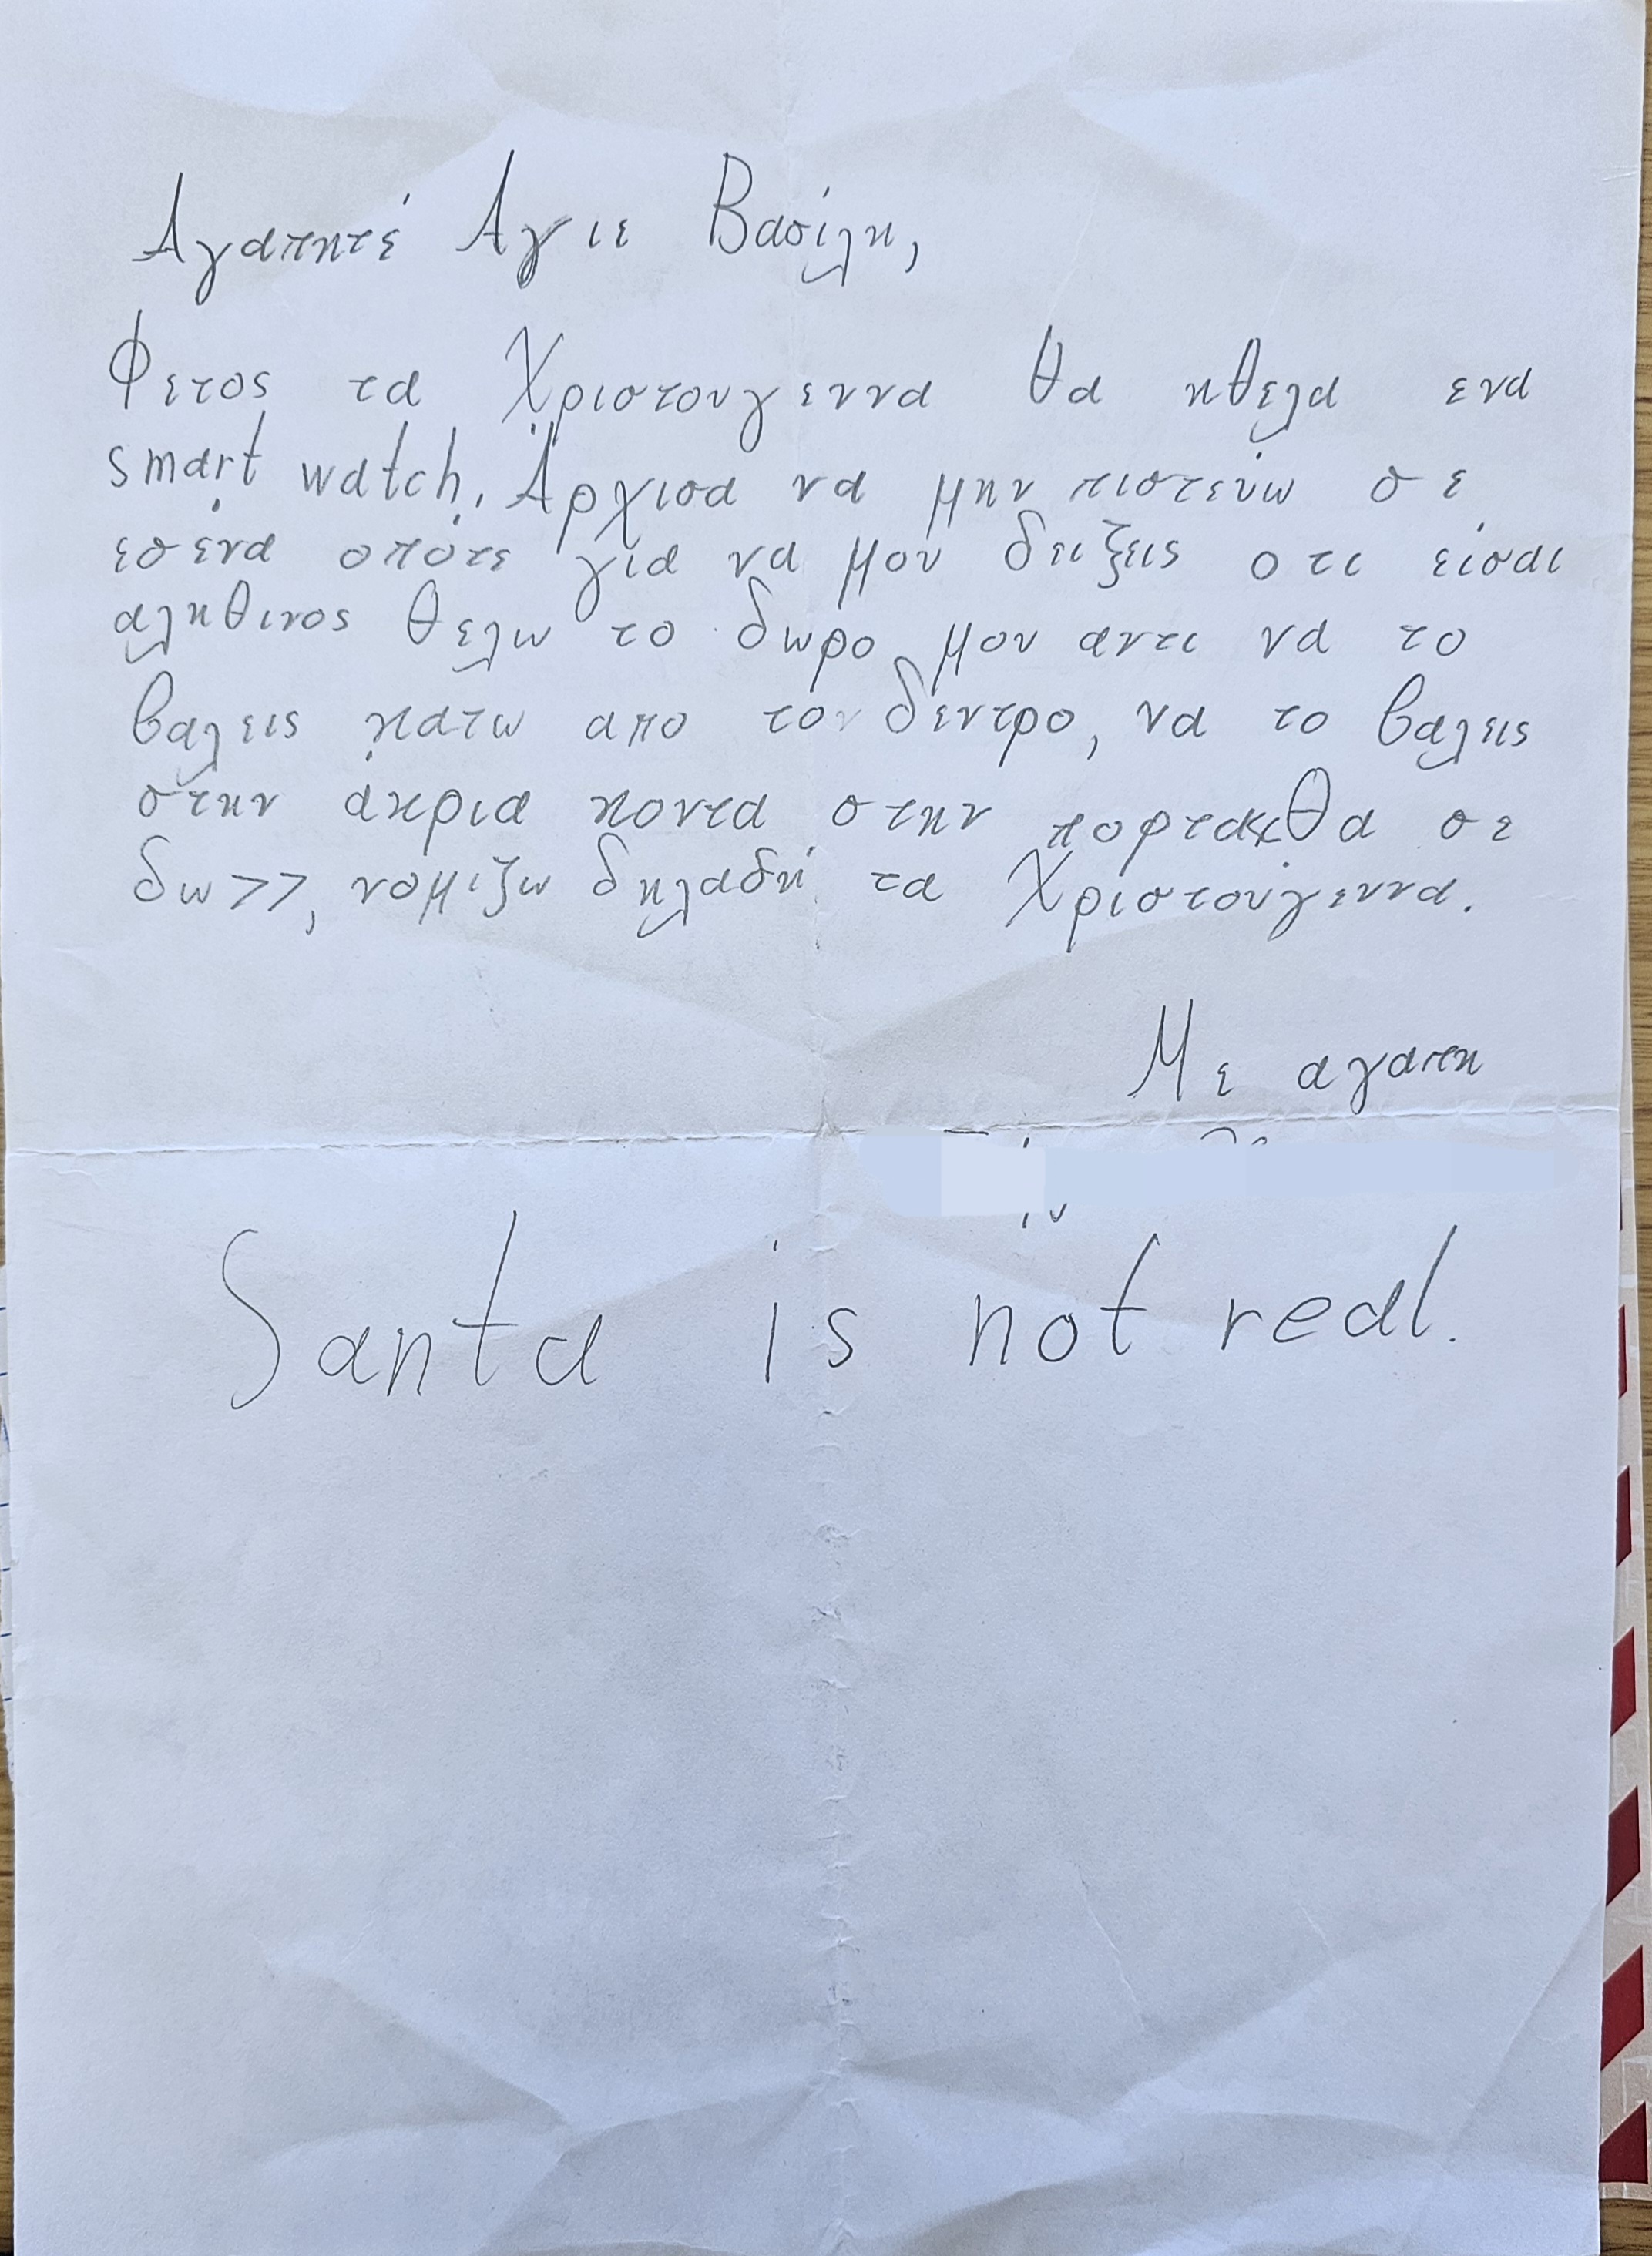 Αγαπητέ Αγιε Βασίλη,
Φετος τα Χριστουγεννα θα ηθελα ενα
smart watch. Άρχισα να μην πιστεύω σε
εσένα οπότε για να μου δειξεις οτι είσαι
αληθινος θελω το δωρο μου αντι να το
βαλεις κατω απο τον δεντρο, να το βαλεις
στην άκρια κοντα στην πορτα<<Θα σε
δω>>, νομιζω δηλαδή τα Χριστούγεννα.
Με αγαπη
Santa is not real.